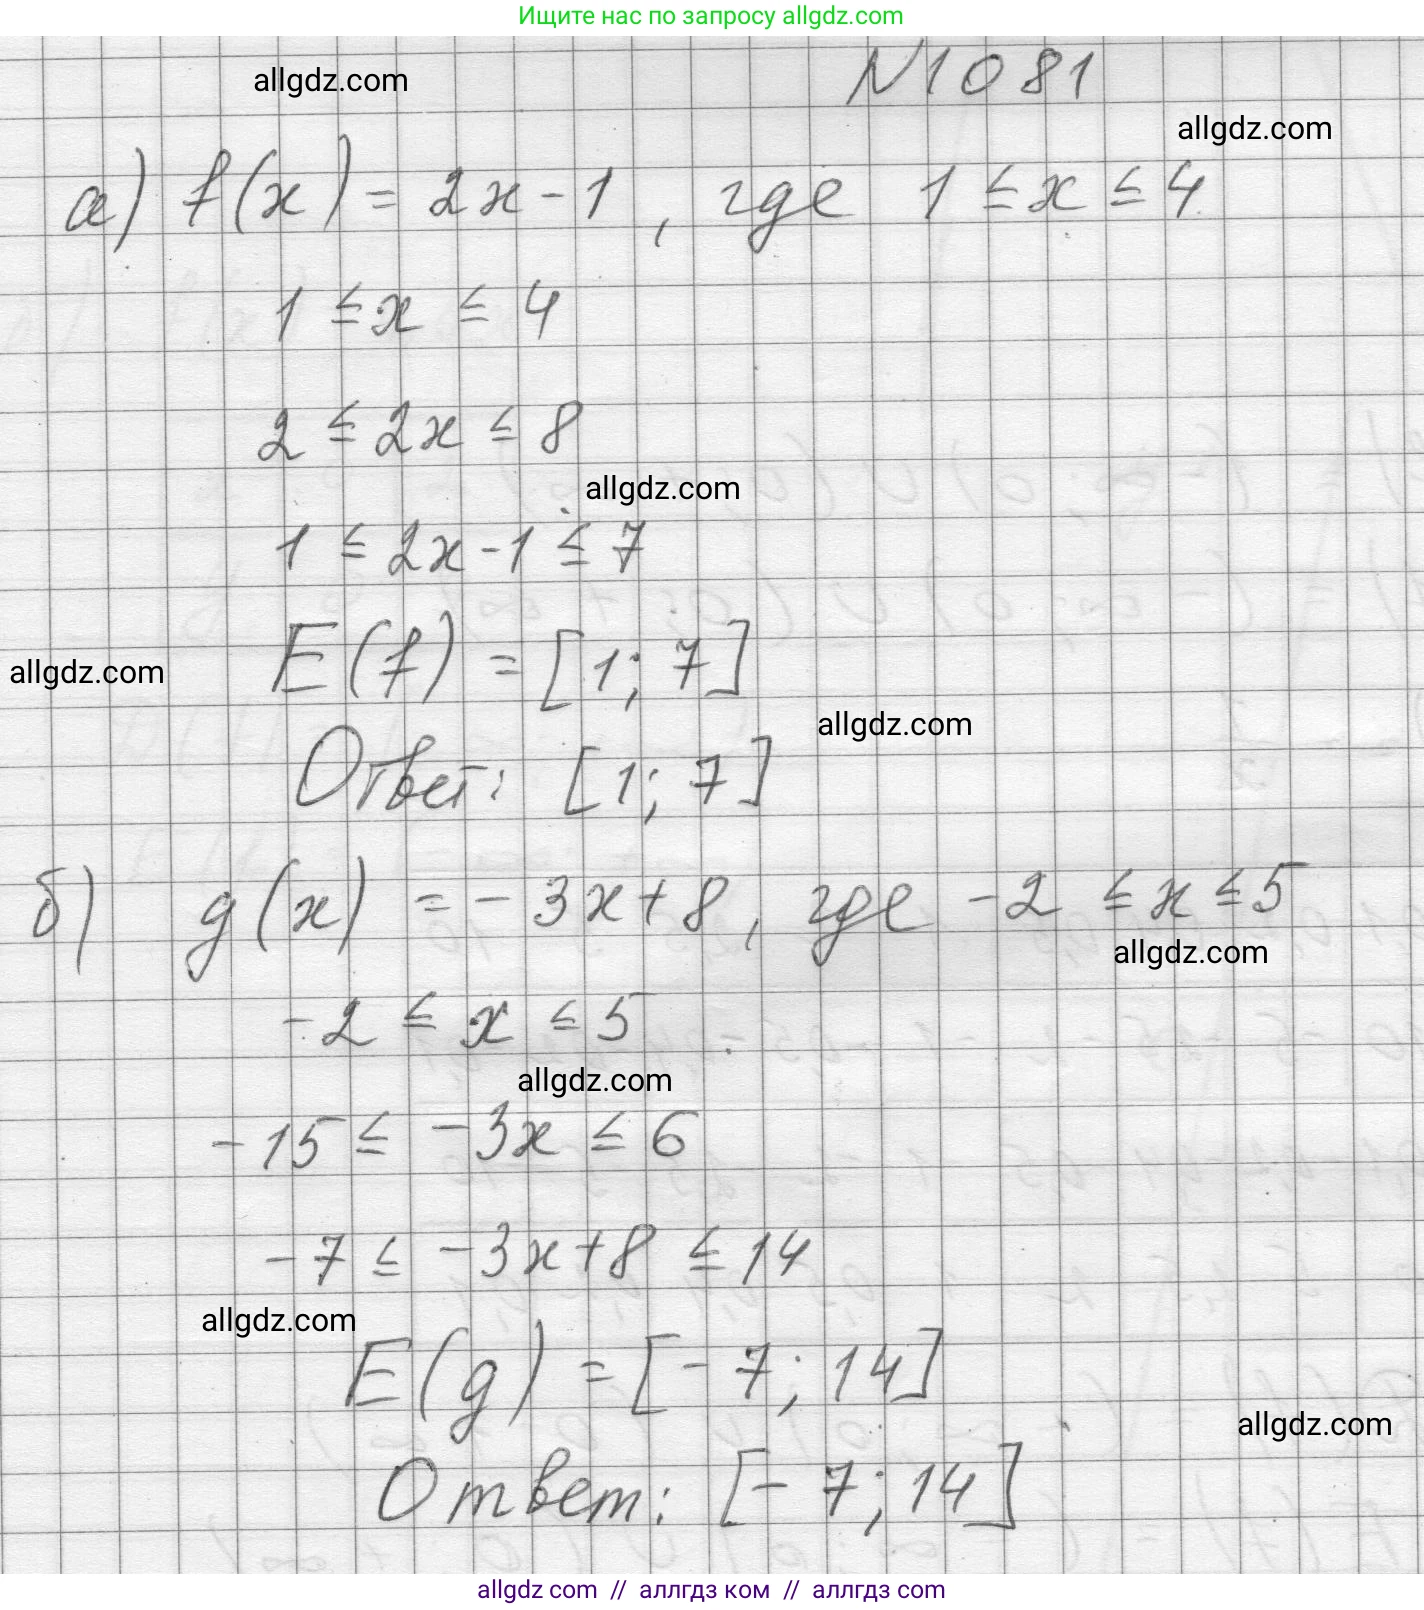 Ищите нас по запросу allgdz.com
allgdz.com
N1081
allgdz.com
а) f(x) = 2x - 1, где 1 ≤ x ≤ 4
1 ≤ x ≤ 4
2 ≤ 2x ≤ 8
allgdz.com
1 ≤ 2x - 1 ≤ 7
allgdz.com
E(f) = [1; 7]
allgdz.com
Ответ: [1; 7]
б) g(x) = - 3x + 8, где -2 ≤ x ≤ 5
allgdz.com
-2 ≤ x ≤ 5
allgdz.com
-15 ≤ -3x ≤ 6
-7 ≤ -3x + 8 ≤ 14
allgdz.com
E(g) = [-7; 14]
allgdz.com
Ответ: [-7; 14]
allgdz com // аллгдз ком // аллгдз.com